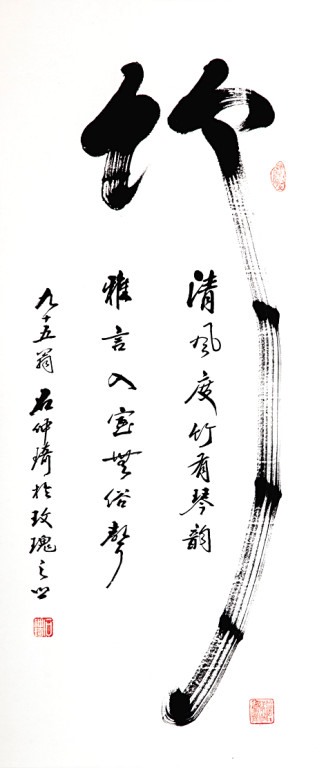 竹
清風度竹有琴韻
雅言入室無俗聲
九十五翁石仲琦於玫瑰之